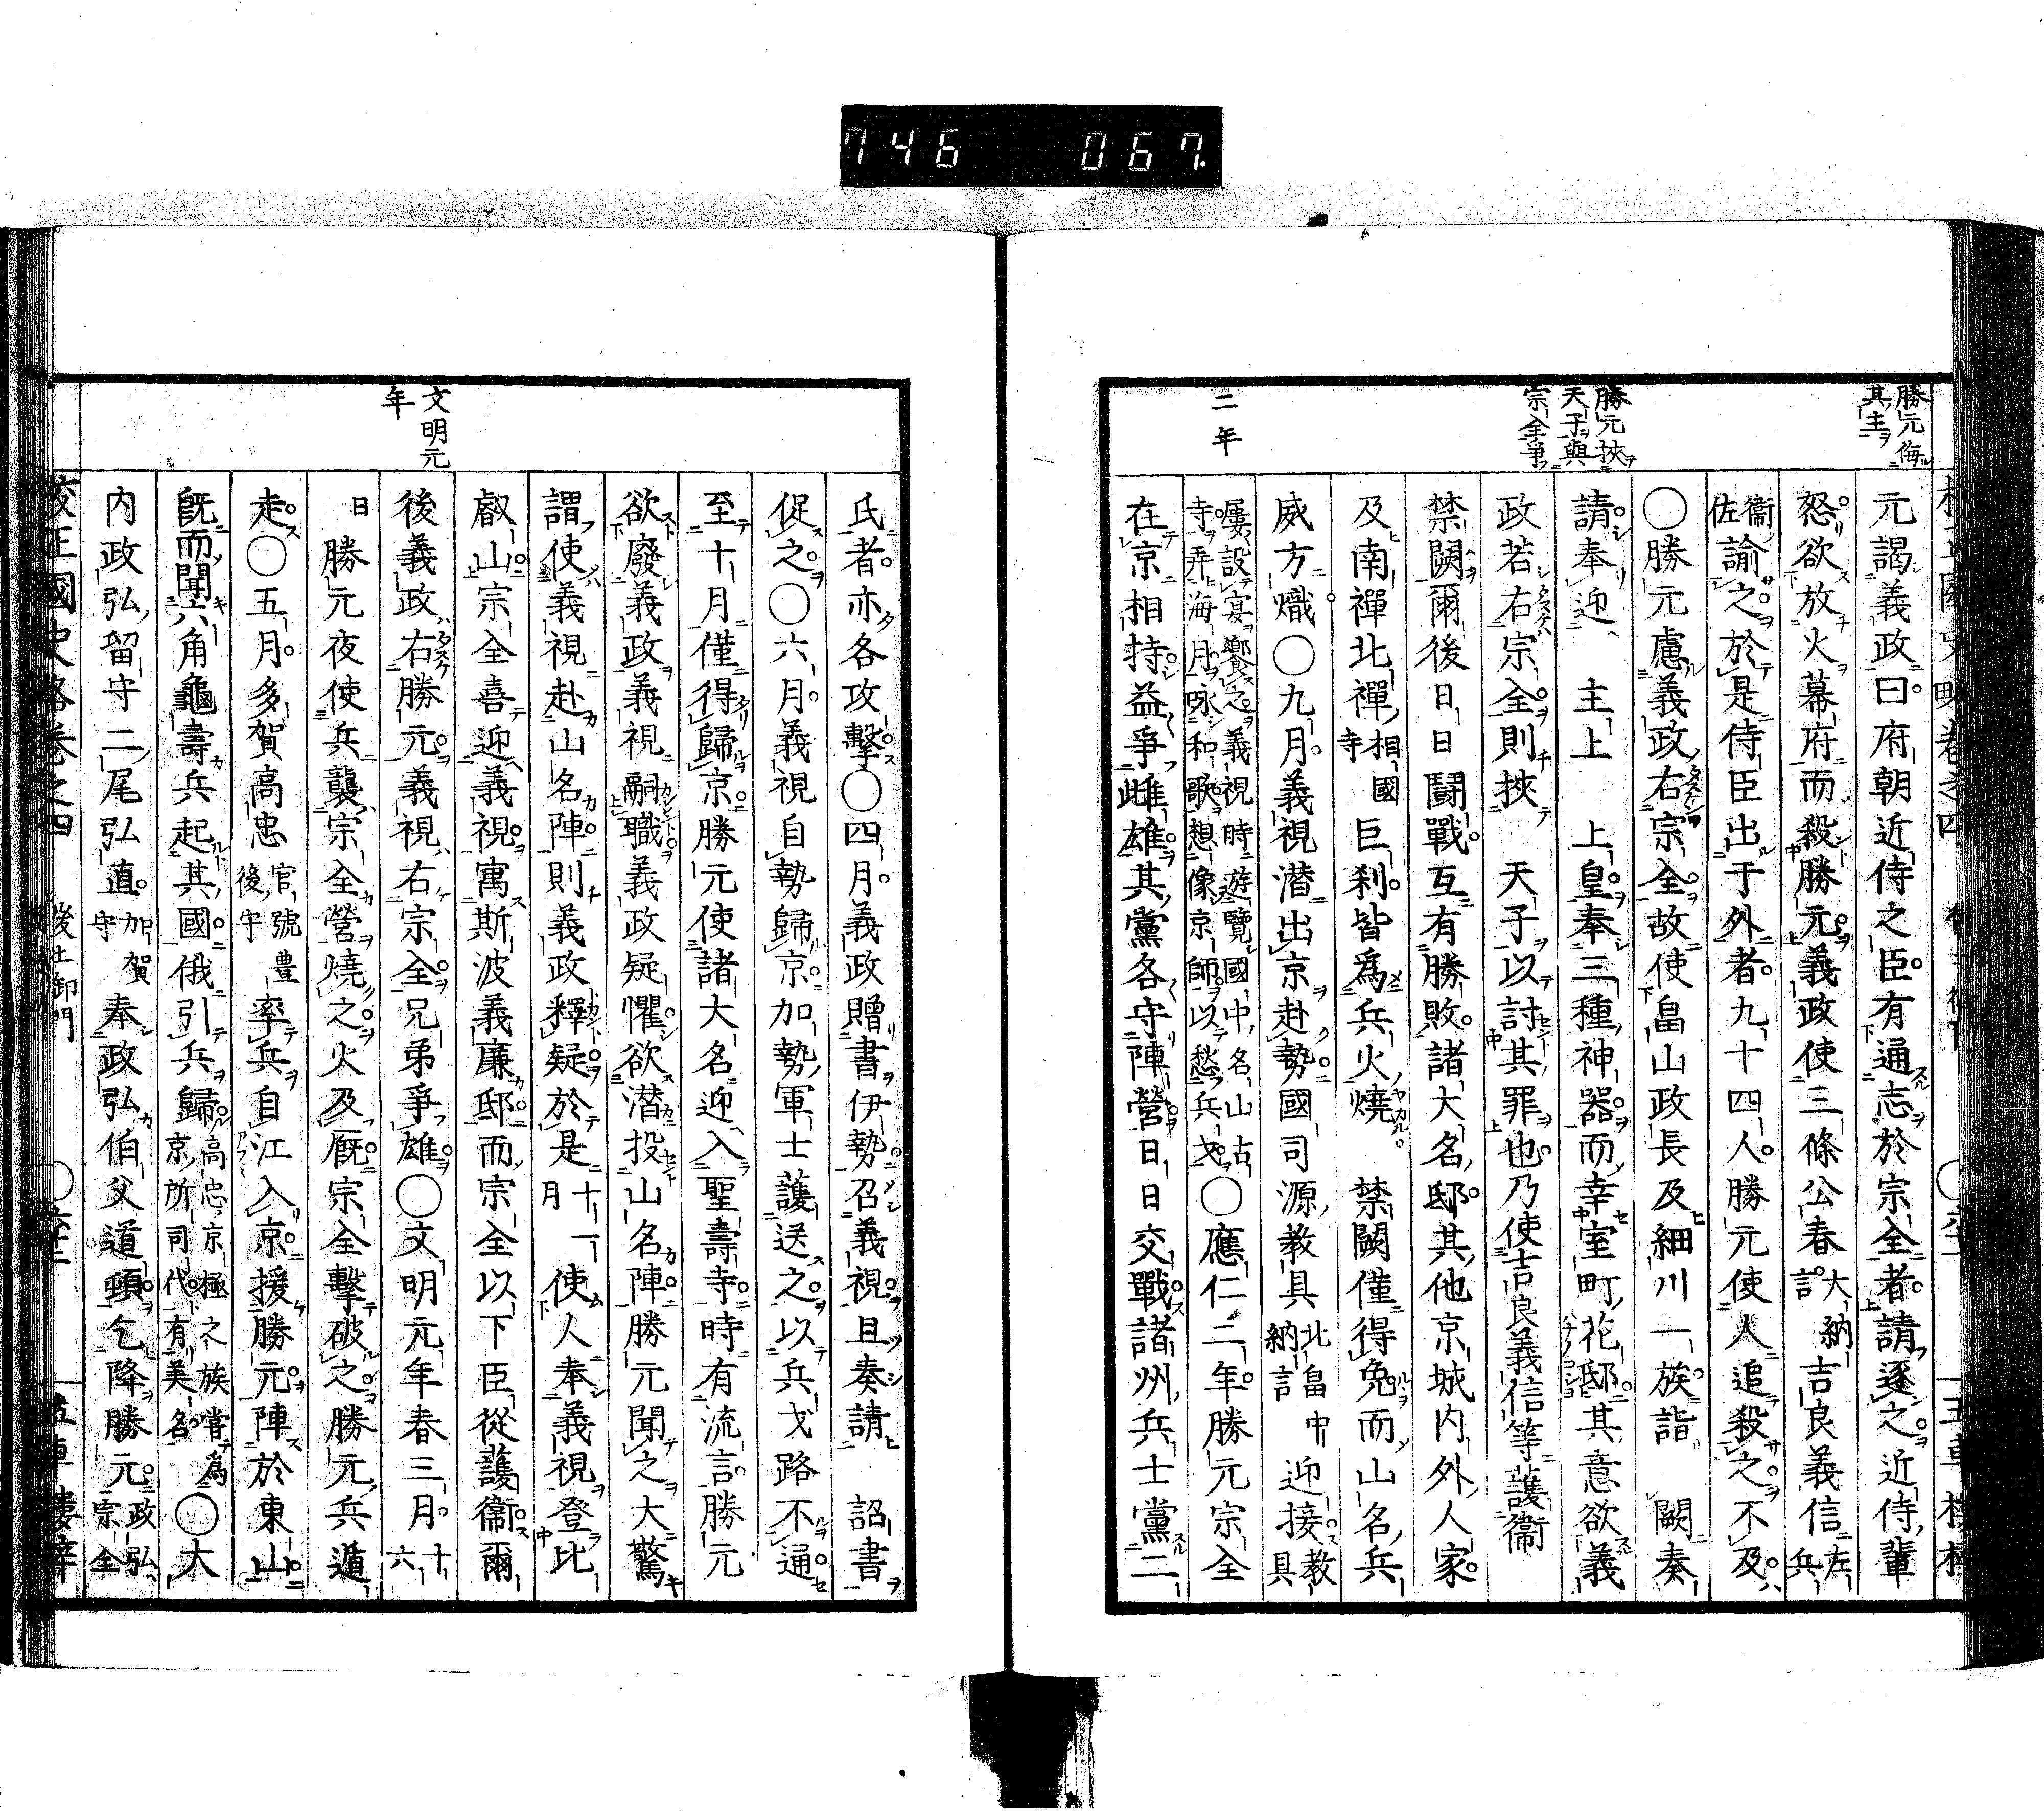 746 067.
勝元侮
其主
元謁義政曰府朝近侍之臣有通志於宗全者請逐之近侍輩
怒欲放火幕府而殺勝元義政使三條公春大納言吉良義信左兵
衞佐諭之於是侍臣出于外者九十四人勝元使人追殺之不及
〇勝元慮義政右宗全故使畠山政長及細川一族詣 闕奏
勝元挾
天子與
宗全爭
請奉迎 主上 上皇奉三種神器而幸室町花邸其意欲義
政若右宗全則挾 天子以討其罪也乃使吉良義信等護衞
禁闕爾後日日鬪戰互有勝敗諸大名邸其他京城内外人家
及南禪北禪相國寺巨刹皆爲兵火燒 禁闕僅得免而山名兵
威方熾〇九月義視潛出京赴勢國司源教具北畠中納言迎接教具
二年
屢設宴饗之義視時遊覽國中名山古
寺弄海月咏和歌想像京師以愁兵戈〇應仁二年勝元宗全
在京相持益爭雌雄其黨各守陣營日日交戰諸州兵士黨二
氏者亦各攻擊〇四月義政贈書伊勢召義視且奏請 詔書
促之〇六月義視自勢歸京加勢軍士護送之以兵戈路不通
至十月僅得歸京勝元使諸大名迎入聖壽寺時有流言勝元
欲廢義政義視嗣職義政疑懼欲潛投山名陣勝元聞之大驚
謂使義視赴山名陣則義政釋疑於是十一月使人奉義視登比
叡山宗全喜迎義視寓斯波義廉邸而宗全以下臣從護衞爾
文明元
年
後義政右勝元義視右宗全兄弟爭雄〇文明元年春三月十六
日勝元夜使兵襲宗全營燒之火及厩宗全擊破之勝元兵遁
走〇五月多賀高忠官號豊後守率兵自江入京援勝元陣於東山
既而聞六角龜壽兵起其國俄引兵歸高忠京極之族嘗爲京所司代有美名〇大
内政弘留守二尾弘直加賀守奉政弘伯父道頓乞降勝元政弘宗全
校正國史略卷之四 後土御門 五車樓梓